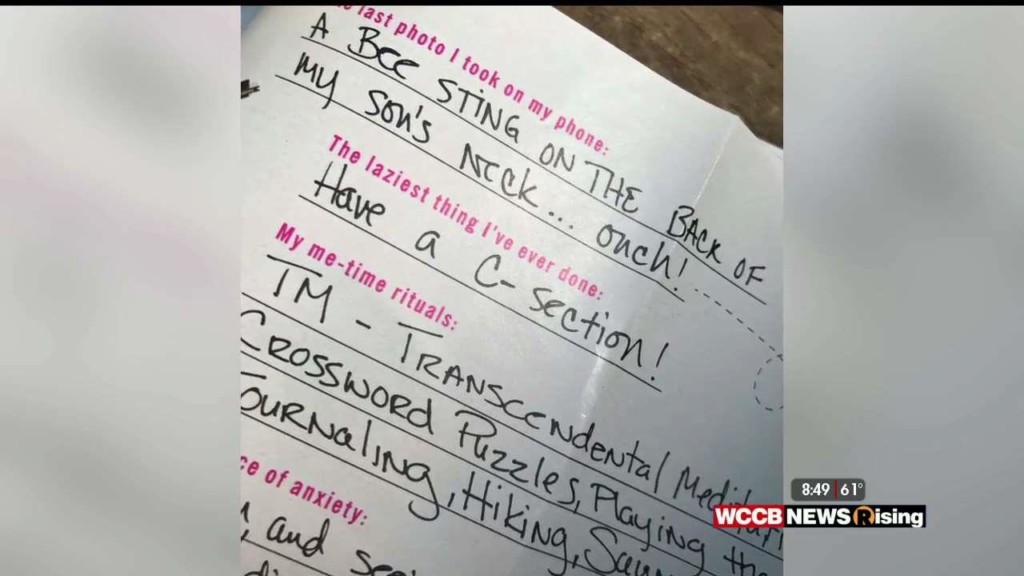 last photo I took on my phone:
A BEE STING ON THE BACK OF
MY SON'S NECK... OUCH!
The laziest thing I've ever done:
Have a C-section!
My me-time rituals:
TM - TRANSCENDENTAL
CROSSWORD PUZZLES, PLAYING
JOURNALING, HIKING,
of anxiety:
and
8:49 61°
WCCB NEWS Rising